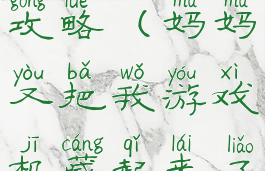 gōng lüè mā mā
攻略（妈妈
yòu bǎ wǒ yóu xì
又把我游戏
jī cáng qǐ lái liǎo
机藏起来了